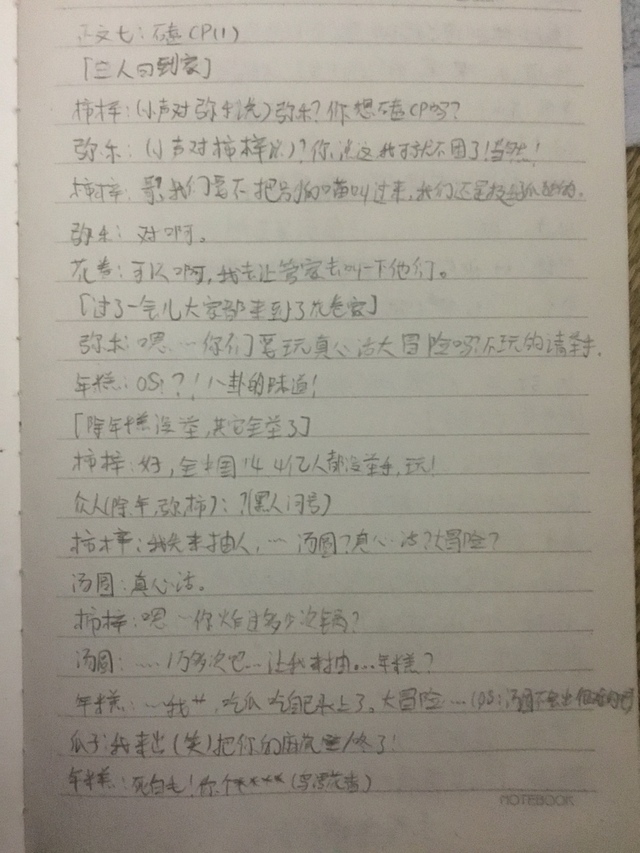 正文七：磕CP(1)
「三人回到家」
柿梓：(小声对弥禾说)弥禾？你想磕CP吗？
弥禾：(小声对柿梓说)？你说这我可就不困了！当然！
柿梓：我们要不把别的喵叫过来，我们还是
弥禾：对啊。
花卷：可以啊，我去让管家去叫一下他们。
「过了一会儿大家都来到了花卷家」
弥禾：嗯…你们要玩真心话大冒险吗？不玩的请举手.
年糕：OS：？！八卦的味道！
「除年糕没举，其它全举了」
柿梓：好，全中国14.4亿人都没举手，玩！
众人(除年，弥，柿)：？(黑人问号)
柿梓：我先来抽人，…汤圆？真心话？大冒险？
汤圆：真心话。
柿梓：嗯…你炸过多少次锅？
汤圆：……1万多次吧…让我来抽…年糕？
年糕：…我艹，吃瓜吃自己头上了。大冒险…(OS：汤圆不会出
瓜子：我来出(笑)把你的
年糕：死白毛！你个****(
NOTEBOOK